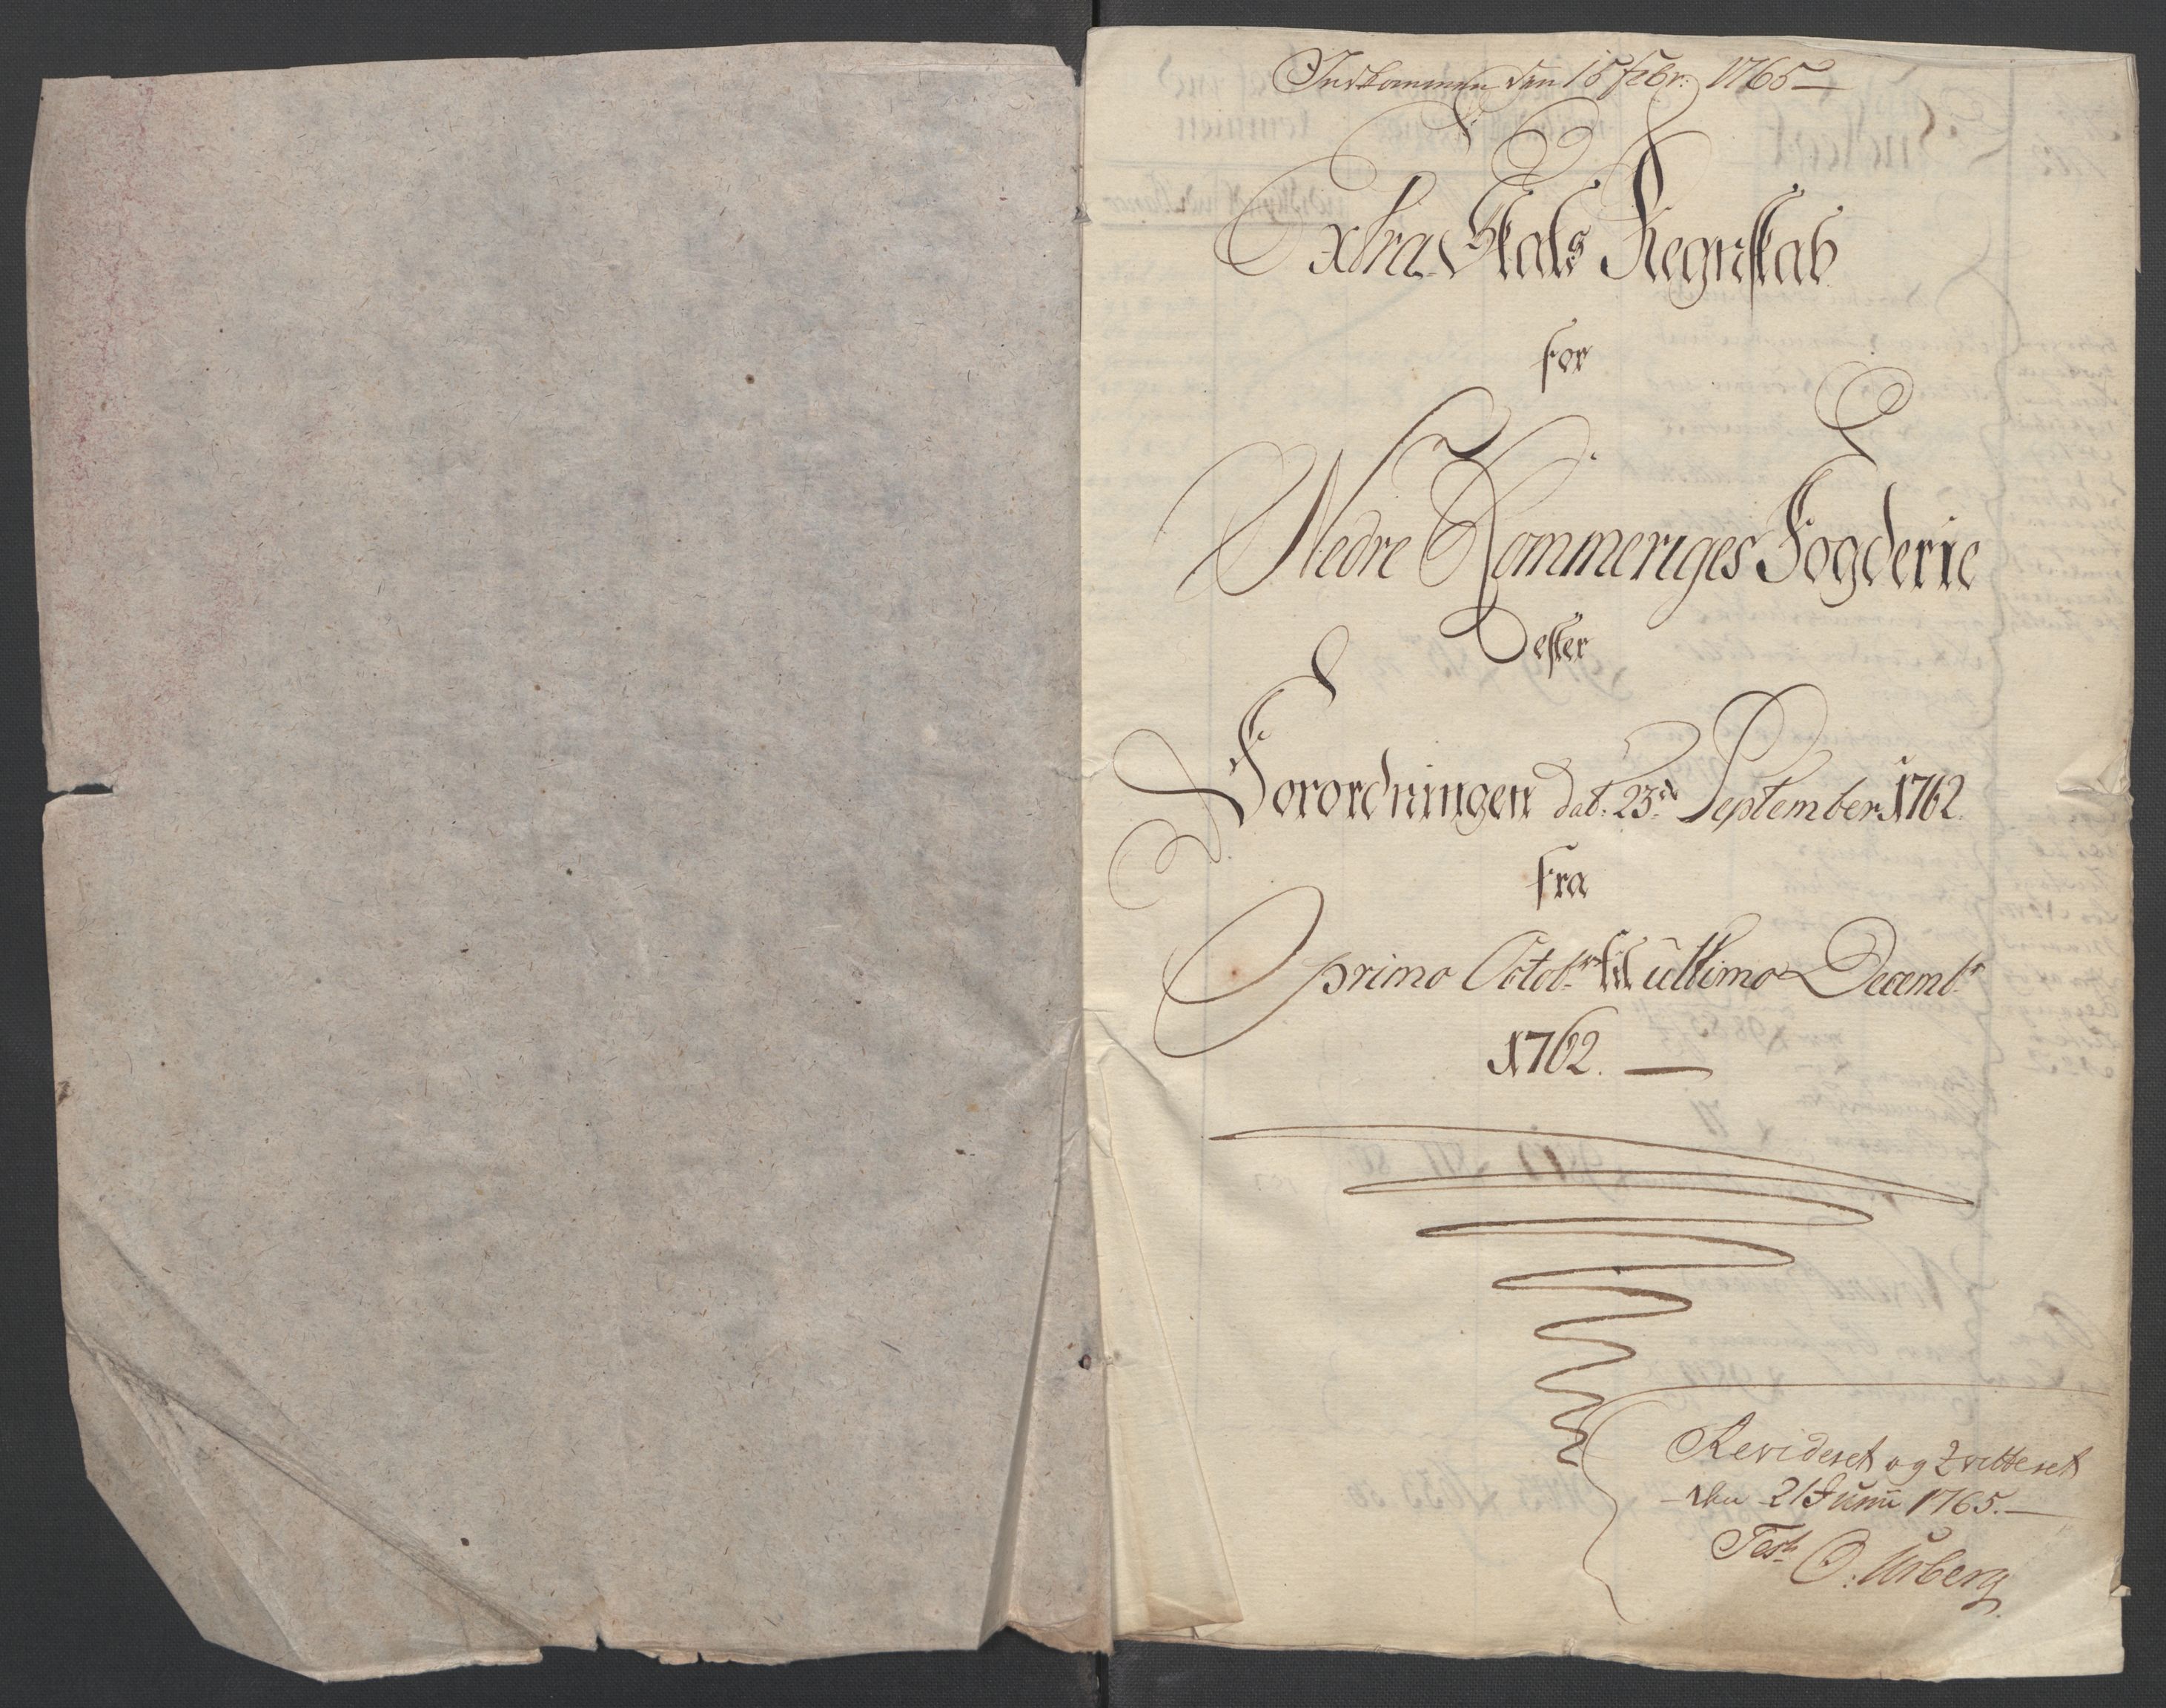 Indkommen den 15 Febr: 1765
Extra Skats Regnskab
for
Nedre Rommeriges Fogderie
efter
Forordningen dat: 23de September 1762.
fra
primo Octobr til ultimo Decembr
1762.
Revideret og Qvitteret
den 21 Junii 1765.
Test O: Urberg